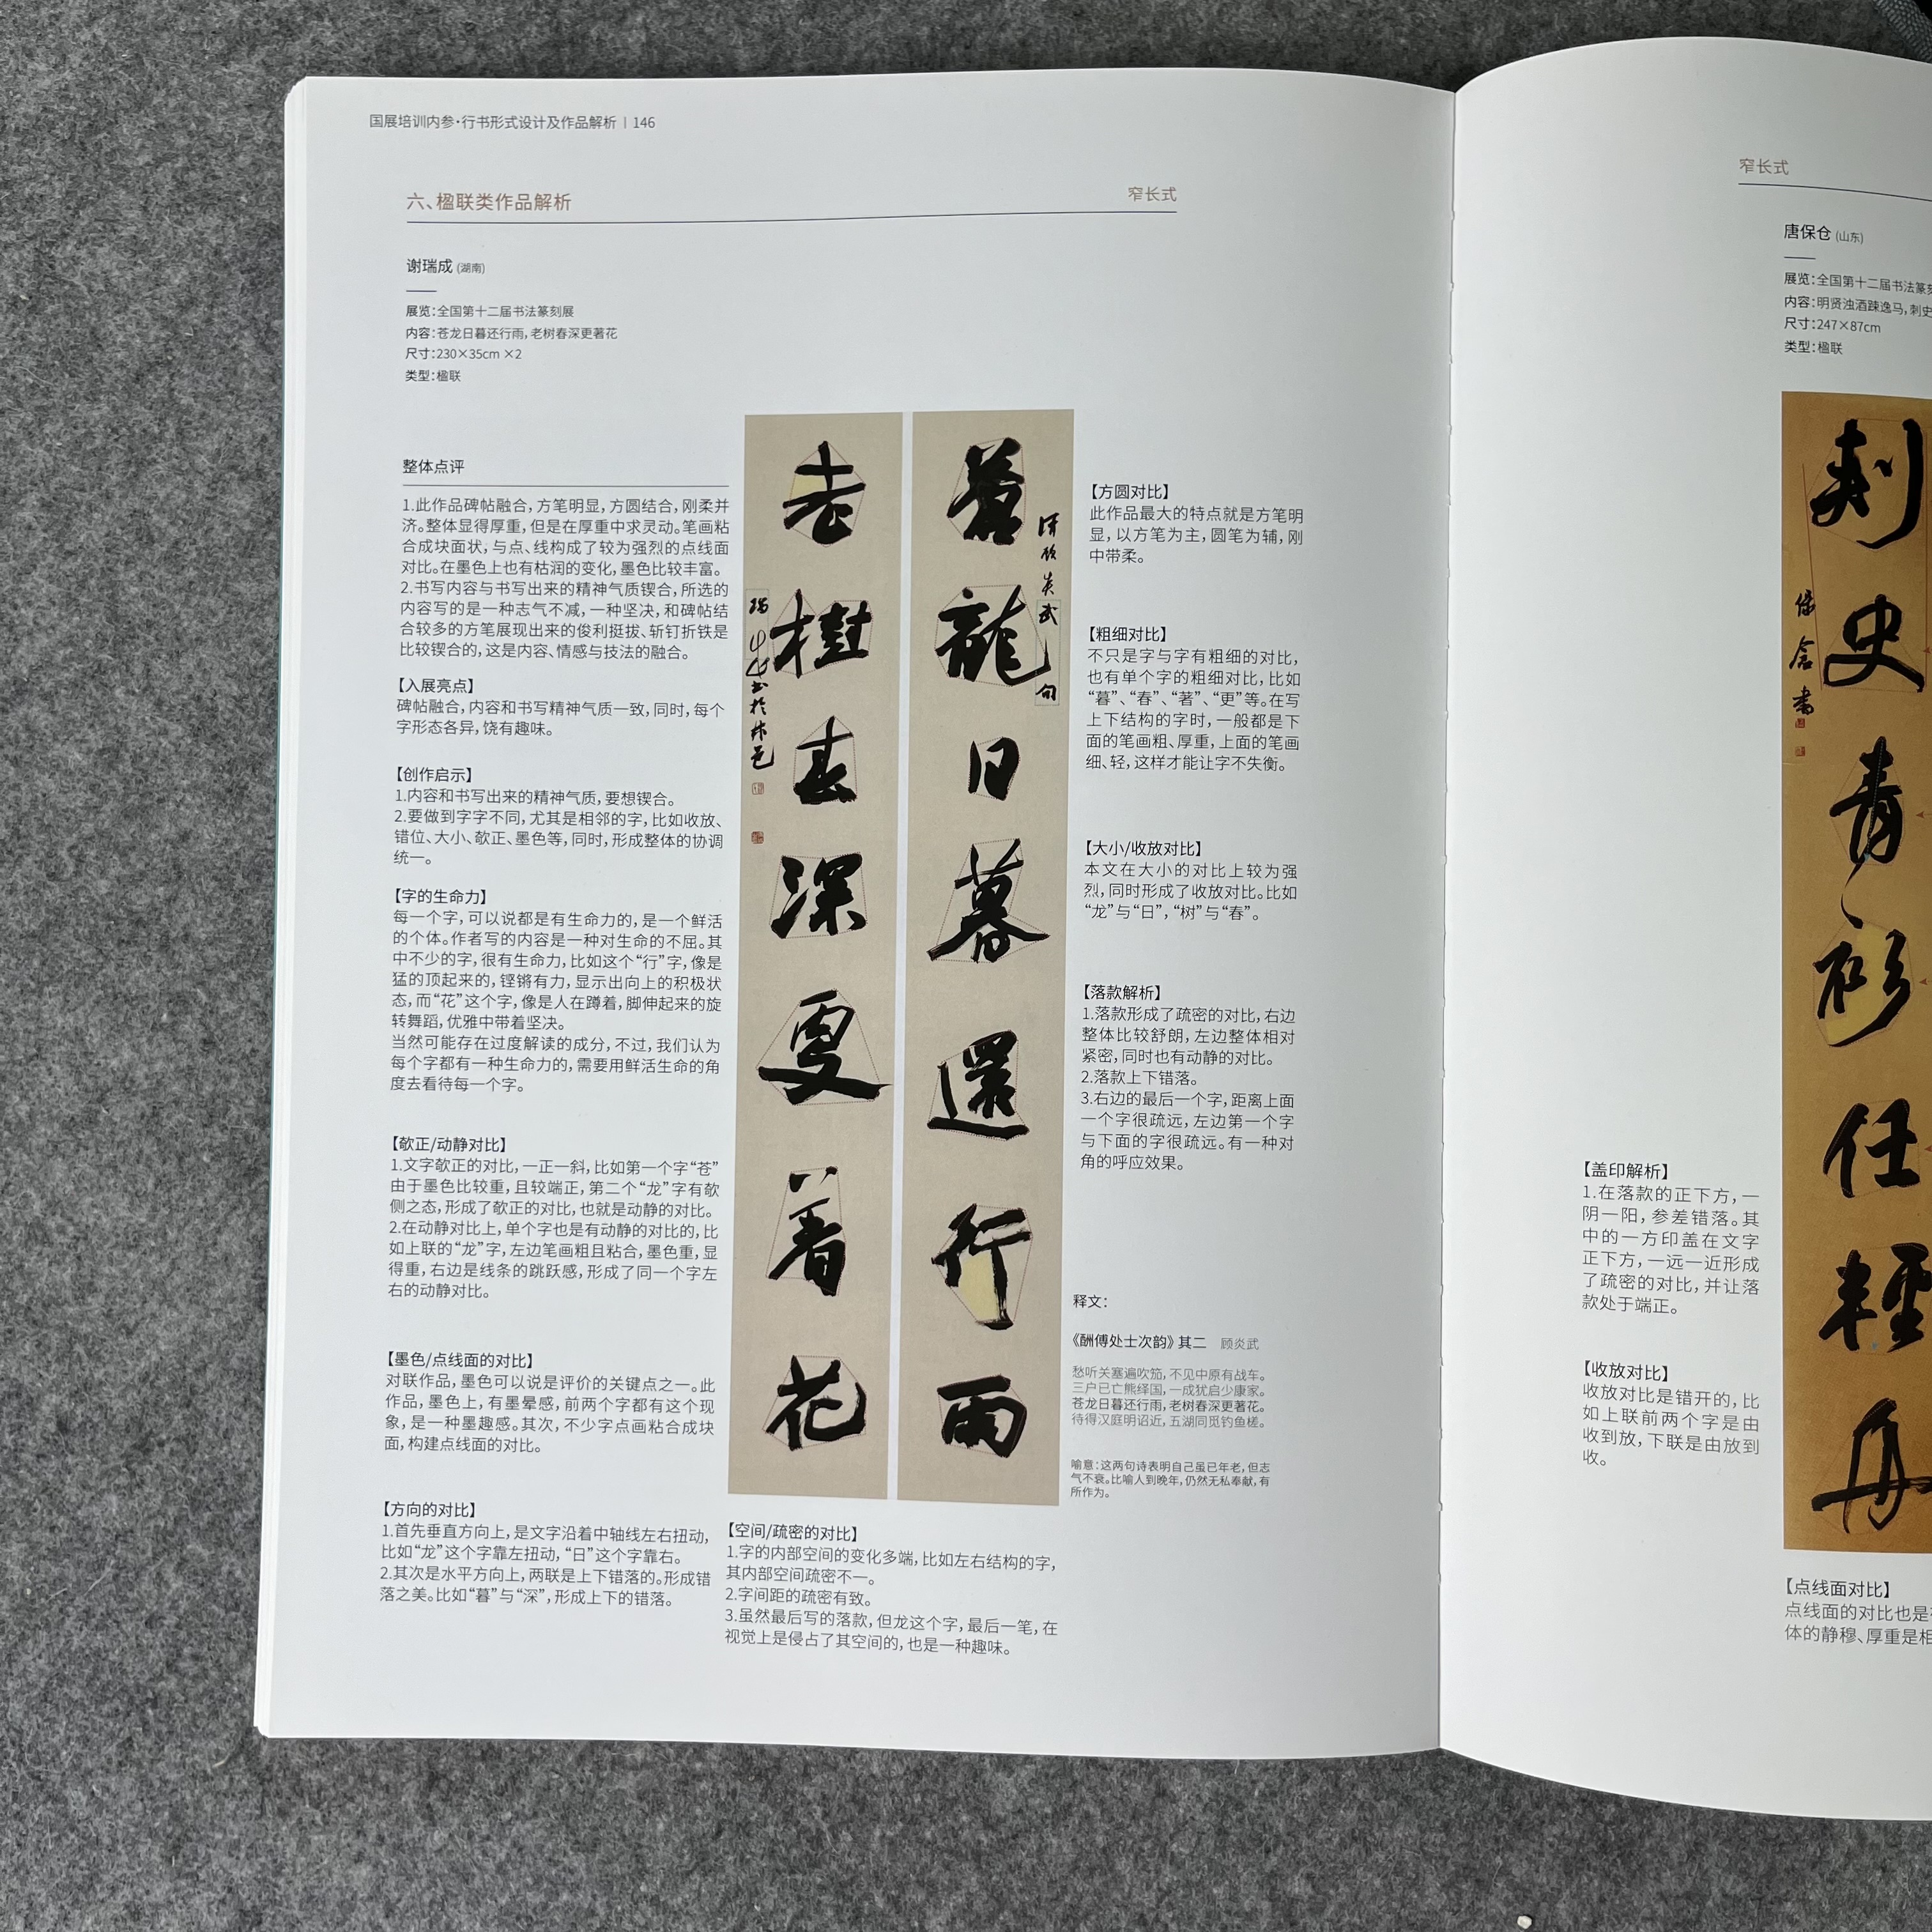 国展培训内参·行书形式设计及作品解析 | 146
六、楹联类作品解析
窄长式
谢瑞成 (湖南)
展览:全国第十二届书法篆刻展
内容:苍龙日暮还行雨,老树春深更著花
尺寸:230×35cm ×2
类型:楹联
整体点评
1.此作品碑帖融合,方笔明显,方圆结合,刚柔并
济。整体显得厚重,但是在厚重中求灵动。笔画粘
合成块面状,与点、线构成了较为强烈的点线面
对比。在墨色上也有枯润的变化,墨色比较丰富。
2.书写内容与书写出来的精神气质锲合,所选的
内容写的是一种志气不减,一种坚决,和碑帖结
合较多的方笔展现出来的俊利挺拔、斩钉折铁是
比较锲合的,这是内容、情感与技法的融合。
【入展亮点】
碑帖融合,内容和书写精神气质一致,同时,每个
字形态各异,饶有趣味。
【创作启示】
1.内容和书写出来的精神气质,要想锲合。
2.要做到字字不同,尤其是相邻的字,比如收放、
错位、大小、欹正、墨色等,同时,形成整体的协调
统一。
【字的生命力】
每一个字,可以说都是有生命力的,是一个鲜活
的个体。作者写的内容是一种对生命的不屈。其
中不少的字,很有生命力,比如这个“行”字,像是
猛的顶起来的,铿锵有力,显示出向上的积极状
态,而“花”这个字,像是人在蹲着,脚伸起来的旋
转舞蹈,优雅中带着坚决。
当然可能存在过度解读的成分,不过,我们认为
每个字都有一种生命力的,需要用鲜活生命的角
度去看待每一个字。
【欹正/动静对比】
1.文字欹正的对比,一正一斜,比如第一个字“苍”
由于墨色比较重,且较端正,第二个“龙”字有欹
侧之态,形成了欹正的对比,也就是动静的对比。
2.在动静对比上,单个字也是有动静的对比的,比
如上联的“龙”字,左边笔画粗且粘合,墨色重,显
得重,右边是线条的跳跃感,形成了同一个字左
右的动静对比。
【墨色/点线面的对比】
对联作品,墨色可以说是评价的关键点之一。此
作品,墨色上,有墨晕感,前两个字都有这个现
象,是一种墨趣感。其次,不少字点画粘合成块
面,构建点线面的对比。
【方向的对比】
1.首先垂直方向上,是文字沿着中轴线左右扭动,
比如“龙”这个字靠左扭动,“日”这个字靠右。
2.其次是水平方向上,两联是上下错落的。形成错
落之美。比如“暮”与“深”,形成上下的错落。
蒼龍日暮還行雨
清顾炎武句
老樹春深更著花
瑞成书於
【方圆对比】
此作品最大的特点就是方笔明
显,以方笔为主,圆笔为辅,刚
中带柔。
【粗细对比】
不只是字与字有粗细的对比,
也有单个字的粗细对比,比如
“暮”、“春”、“著”、“更”等。在写
上下结构的字时,一般都是下
面的笔画粗、厚重,上面的笔画
细、轻,这样才能让字不失衡。
【大小/收放对比】
本文在大小的对比上较为强
烈,同时形成了收放对比。比如
“龙”与“日”,“树”与“春”。
【落款解析】
1.落款形成了疏密的对比,右边
整体比较舒朗,左边整体相对
紧密,同时也有动静的对比。
2.落款上下错落。
3.右边的最后一个字,距离上面
一个字很疏远,左边第一个字
与下面的字很疏远。有一种对
角的呼应效果。
释文:
《酬傅处士次韵》其二 顾炎武
愁听关塞遍吹笳,不见中原有战车。
三户已亡熊绎国,一成犹启少康家。
苍龙日暮还行雨,老树春深更著花。
待得汉庭明诏近,五湖同觅钓鱼槎。
喻意:这两句诗表明自己虽已年老,但志
气不衰。比喻人到晚年,仍然无私奉献,有
所作为。
【空间/疏密的对比】
1.字的内部空间的变化多端,比如左右结构的字,
其内部空间疏密不一。
2.字间距的疏密有致。
3.虽然最后写的落款,但龙这个字,最后一笔,在
视觉上是侵占了其空间的,也是一种趣味。
窄长式
唐保仓 (山东)
展览:全国第十二届书法篆刻
内容:明贤浊酒踈逸马,刺史
尺寸:247×87cm
类型:楹联
刺史青衫任輕舟
保仓書
【盖印解析】
1.在落款的正下方,一
阴一阳,参差错落。其
中的一方印盖在文字
正下方,一远一近形成
了疏密的对比,并让落
款处于端正。
【收放对比】
收放对比是错开的,比
如上联前两个字是由
收到放,下联是由放到
收。
【点线面对比】
点线面的对比也是
体的静穆、厚重是相